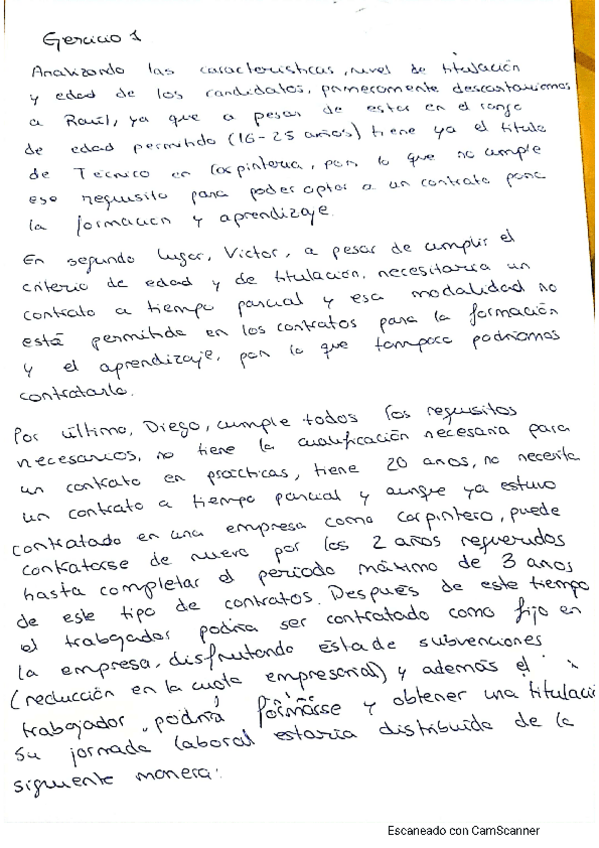 Ejercicio 1
Analizando las características, nivel de titulación
y edad de los candidatos, primeramente descartaríamos
a Raúl, ya que a pesar de estar en el rango
de edad permitido (16-25 años) tiene ya el título
de Técnico en Carpintería, por lo que no cumple
ese requisito para poder optar a un contrato para
la formación y aprendizaje.
En segundo lugar, Victor, a pesar de cumplir el
criterio de edad y de titulación, necesitaría un
contrato a tiempo parcial y esa modalidad no
está permitida en los contratos para la formación
y el aprendizaje, por lo que tampoco podríamos
contratarlo.
Por último, Diego, cumple todos los requisitos
necesarios, no tiene la cualificación necesaria para
un contrato en prácticas, tiene 20 años, no necesita
un contrato a tiempo parcial y aunque ya estuvo
contratado en una empresa como carpintero, puede
contratarse de nuevo por los 2 años requeridos
hasta completar el período máximo de 3 años
de este tipo de contratos. Después de este tiempo
el trabajador podría ser contratado como fijo en
la empresa, disfrutando ésta de subvenciones
(reducción en la cuota empresarial) y además el
trabajador podría formarse y obtener una titulación
Su jornada laboral estaría distribuida de la
siguiente manera:
Escaneado con CamScanner